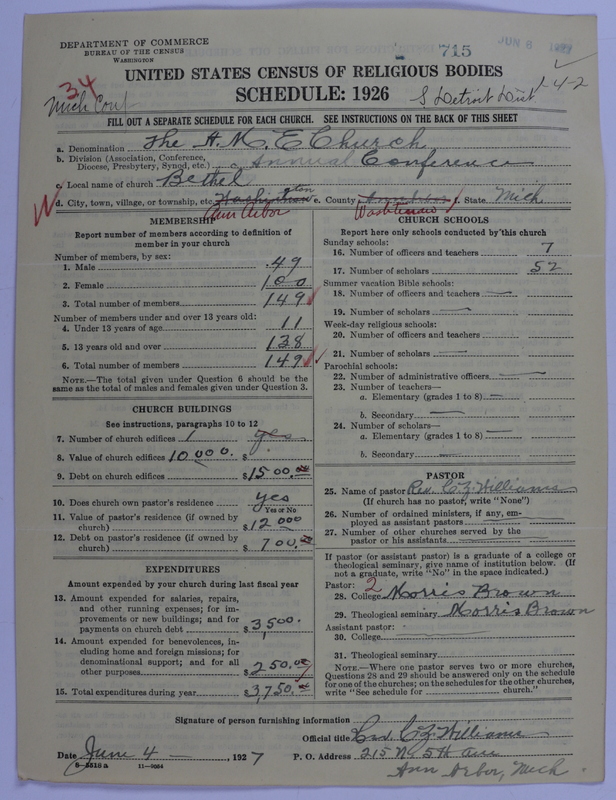 DEPARTMENT OF COMMERCE
BUREAU OF THE CENSUS
WASHINGTON
715
JUN 8 1927
UNITED STATES CENSUS OF RELIGIOUS BODIES
34
Mich Conf
SCHEDULE: 1926
S. Detroit Dist
1-4-2
FILL OUT A SEPARATE SCHEDULE FOR EACH CHURCH. SEE INSTRUCTIONS ON THE BACK OF THIS SHEET
a. Denomination The A.M.E Church
b. Division (Association, Conference, Diocese, Presbytery, Synod, etc.) Annual Conference
c. Local name of church Bethel
d. City, town, village, or township, etc. Washington e. County f. State Mich
Ann Arbor Washtenaw
MEMBERSHIP
Report number of members according to definition of member in your church
Number of members, by sex:
1. Male 49
2. Female 100
3. Total number of members 149
Number of members under and over 13 years old:
4. Under 13 years of age 11
5. 13 years old and over 138
6. Total number of members 149
NOTE.—The total given under Question 6 should be the same as the total of males and females given under Question 3.
CHURCH BUILDINGS
See instructions, paragraphs 10 to 12
7. Number of church edifices 1 yes
8. Value of church edifices 10,000. $
9. Debt on church edifices $1500.00
10. Does church own pastor's residence yes
Yes or No
11. Value of pastor's residence (if owned by church) $12000
12. Debt on pastor's residence (if owned by church) $700.00
EXPENDITURES
Amount expended by your church during last fiscal year
13. Amount expended for salaries, repairs, and other running expenses; for improvements or new buildings; and for payments on church debt $3,500.
14. Amount expended for benevolences, including home and foreign missions; for denominational support; and for all other purposes $250.00
15. Total expenditures during year $3,750.00
CHURCH SCHOOLS
Report here only schools conducted by this church
Sunday schools:
16. Number of officers and teachers 7
17. Number of scholars 52
Summer vacation Bible schools:
18. Number of officers and teachers —
19. Number of scholars —
Week-day religious schools:
20. Number of officers and teachers
21. Number of scholars —
Parochial schools:
22. Number of administrative officers —
23. Number of teachers—
a. Elementary (grades 1 to 8) —
b. Secondary —
24. Number of scholars—
a. Elementary (grades 1 to 8) —
b. Secondary —
PASTOR
25. Name of pastor Rev. C.Z. Williams
(If church has no pastor, write "None")
26. Number of ordained ministers, if any, employed as assistant pastors —
27. Number of other churches served by the pastor or his assistants —
If pastor (or assistant pastor) is a graduate of a college or theological seminary, give name of institution below. (If not a graduate, write "No" in the space indicated.)
Pastor: 2
28. College Morris Brown
29. Theological seminary Morris Brown
Assistant pastor:
30. College —
31. Theological seminary
NOTE.—Where one pastor serves two or more churches, Questions 28 and 29 should be answered only on the schedule for one of the churches; on the schedules for the other churches, write "See schedule for church."
Signature of person furnishing information
Official title Rev. C.Z. Williams
Date June 4, 1927 P. O. Address 215 N. 5th ave
8-5518 a 11-9054
Ann Arbor, Mich.